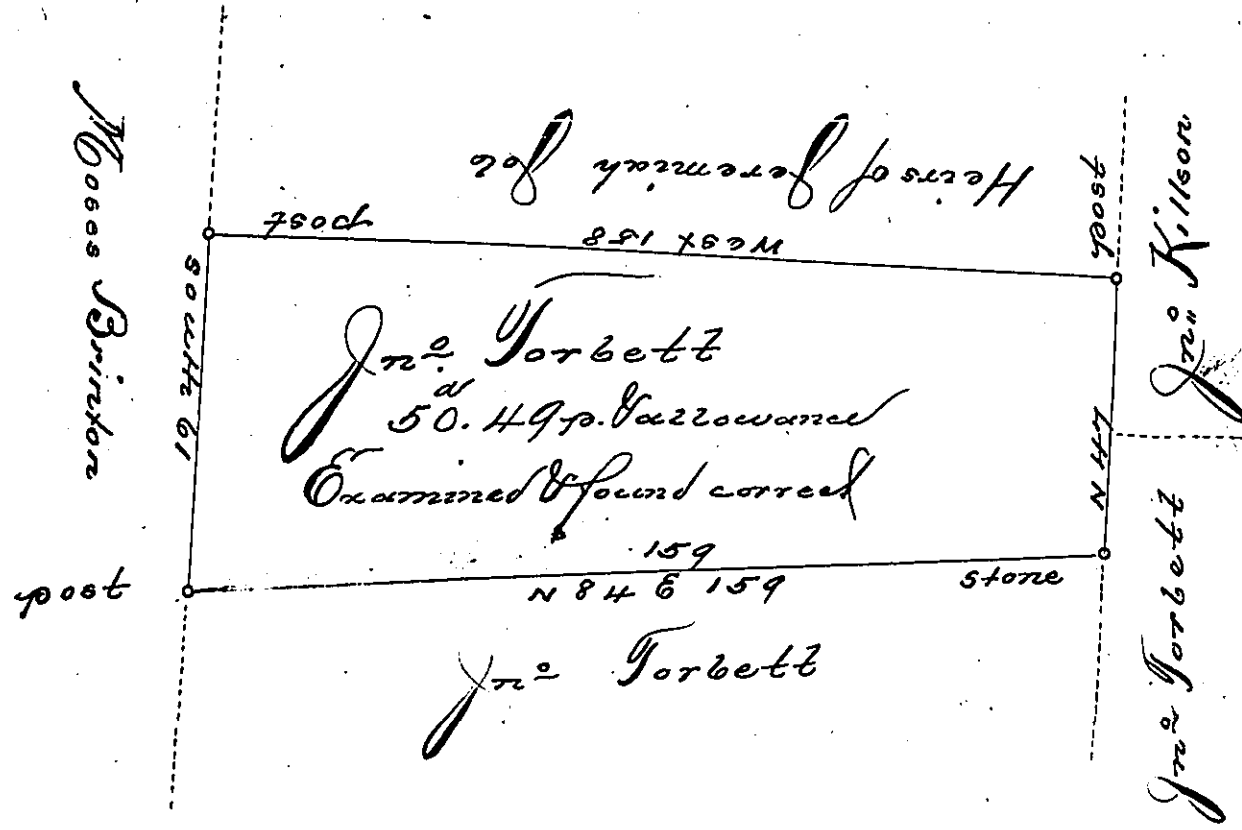 Moses Brinton
Heirs of Jeremiah Job
post
post
West 158
Jnº Killson
South 61
Jnº Torbett
50.ᵃ 49 p. & allowance
Examined & found correct
N 44
159
N 84 E 159
stone
post
Jnº Torbett
Jnº Torbett